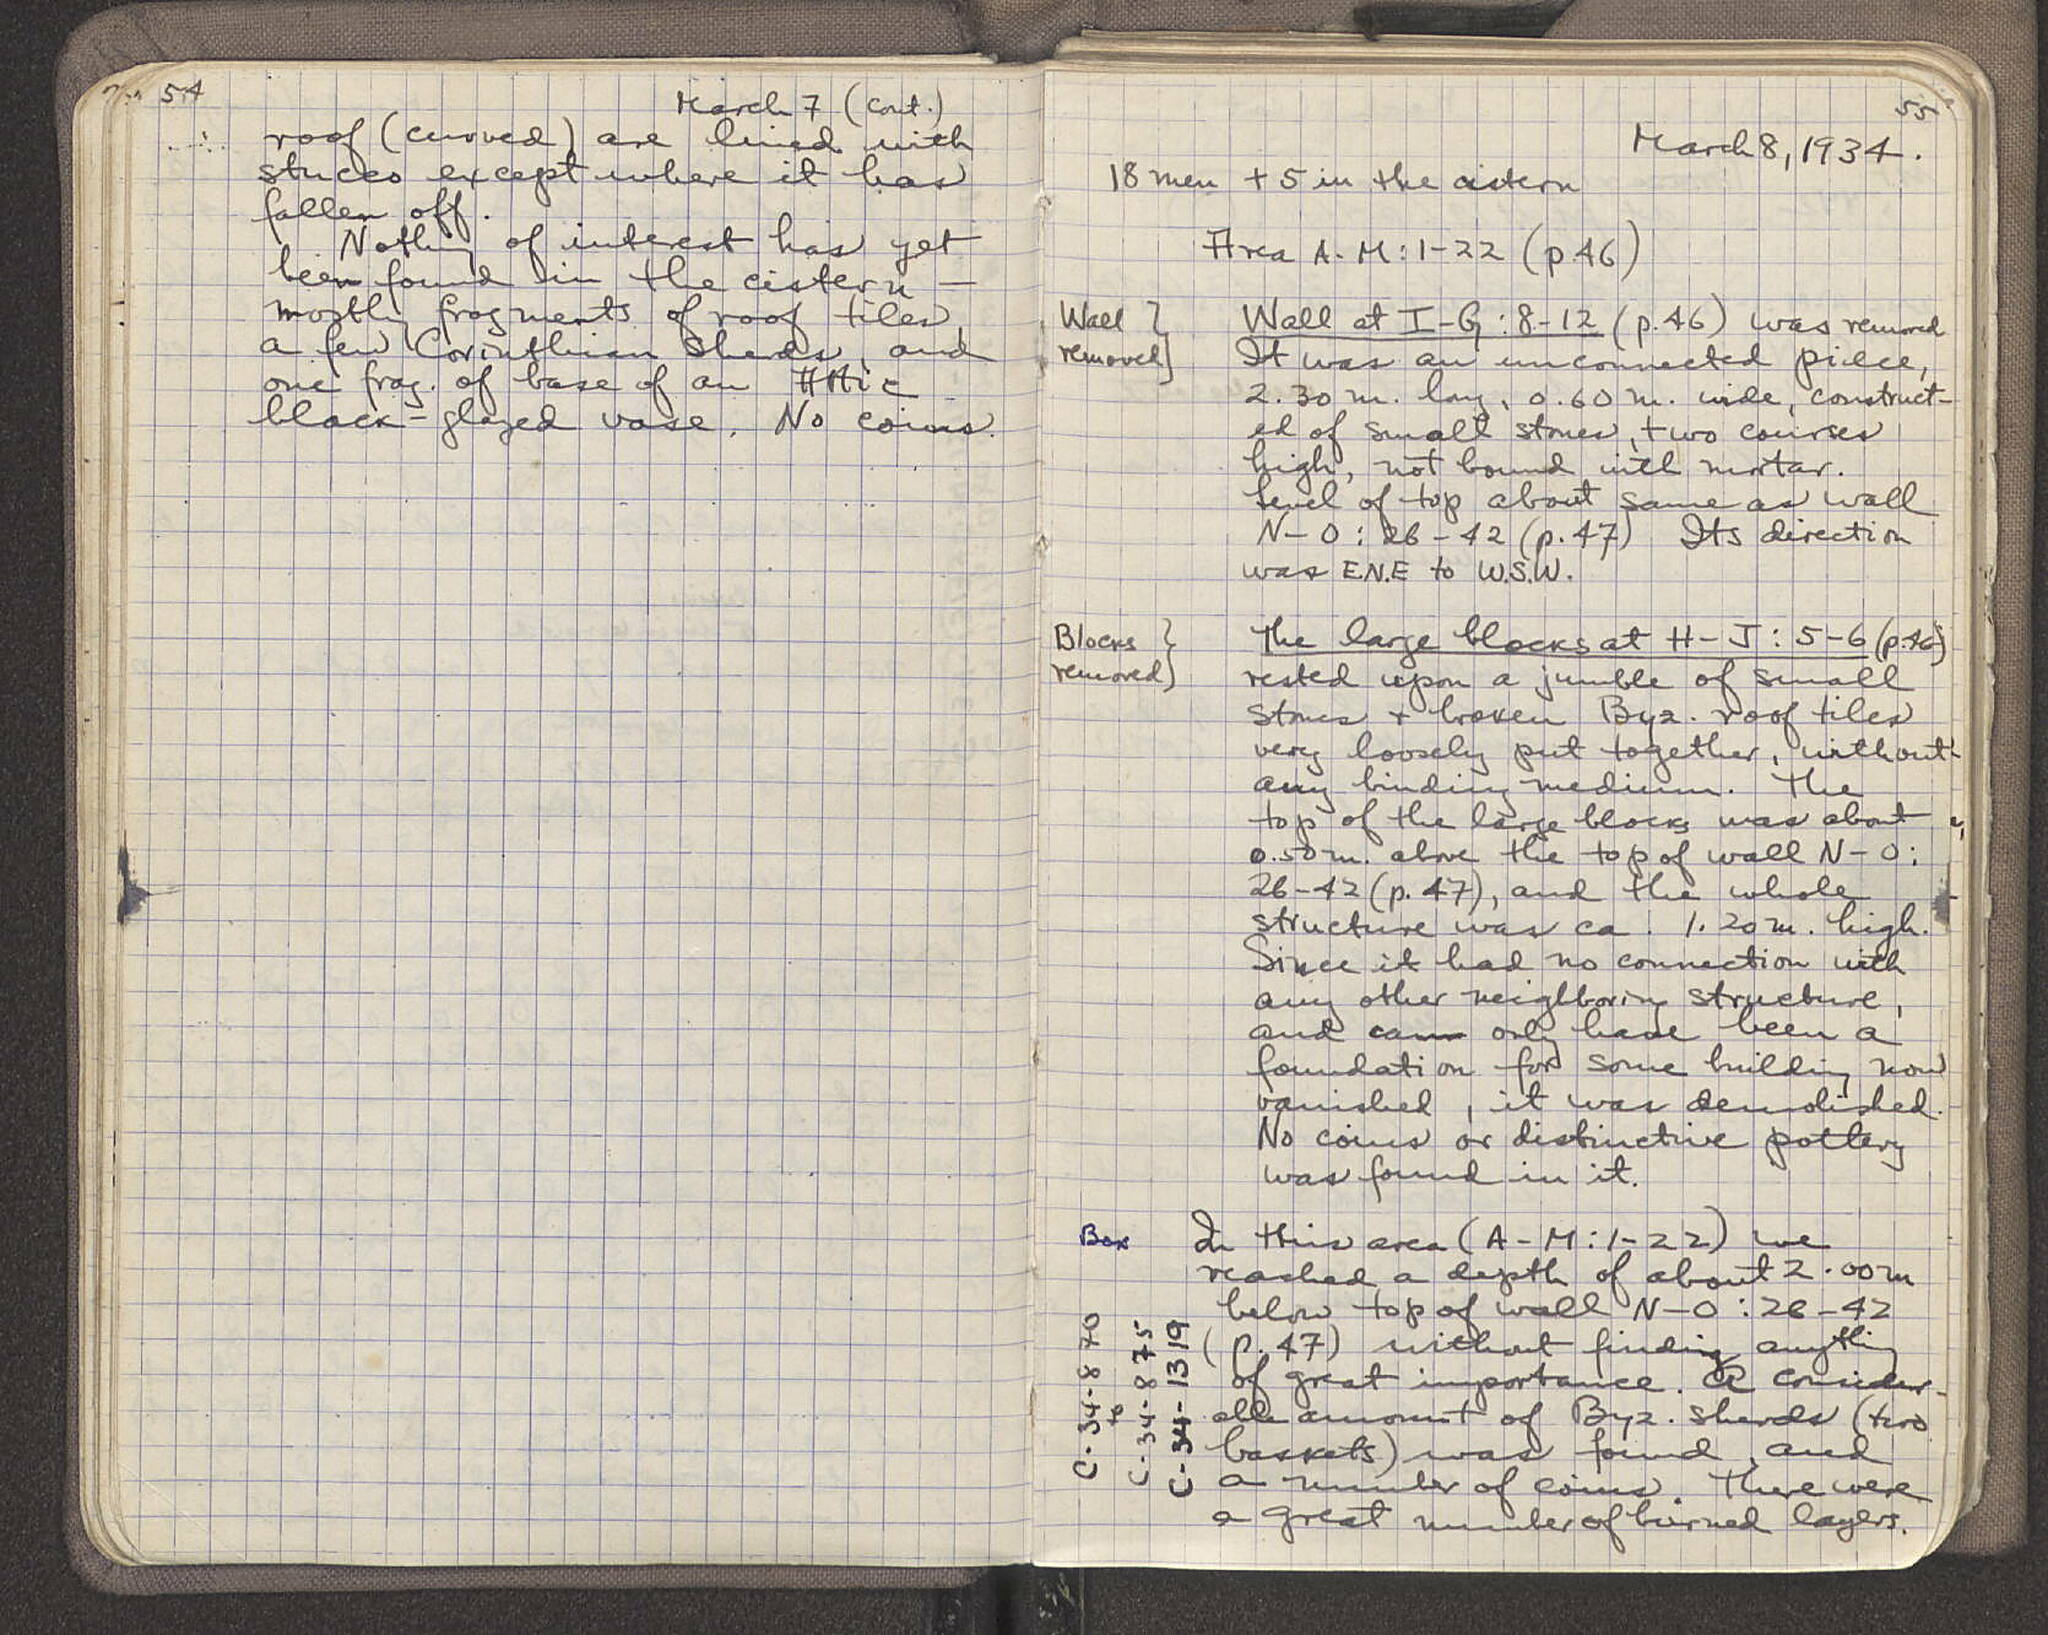 54
March 7 (cont.)
roof (curved) are lined with
stucco except where it has
fallen off.
Nothing of interest has yet
been found in the cistern —
mostly fragments of roof tiles,
a few Corinthian sherds, and
one frag. of base of an Attic
black-glazed vase. No coins.
55
March 8, 1934.
18 men + 5 in the cistern
Area A-M:1-22 (p.46)
Wall
removed
Wall at I-G:8-12 (p.46) was removed
It was an unconnected piece,
2.30 m. long, 0.60 m. wide, construct-
ed of small stones, two courses
high, not bound with mortar.
Level of top about same as wall
N-O:26-42 (p.47) Its direction
was E.N.E to W.S.W.
Blocks
removed
The large blocks at H-J:5-6 (p.46)
rested upon a jumble of small
stones + broken Byz. roof tiles
very loosely put together, without
any binding medium. The
top of the large blocks was about
0.50 m. above the top of wall N-O:
26-42 (p.47), and the whole
structure was ca. 1.20 m. high.
Since it had no connection with
any other neighboring structure,
and can only have been a
foundation for some building now
vanished, it was demolished.
No coins or distinctive pottery
was found in it.
Box
In this area (A-M:1-22) we
reached a depth of about 2.00 m
below top of wall N-O:26-42
(p.47) without finding anything
of great importance. A consider-
able amount of Byz. sherds (two
baskets) was found, and
a number of coins. There were
a great number of burned layers.
C-34-870
to
C-34-875
C-34-1319